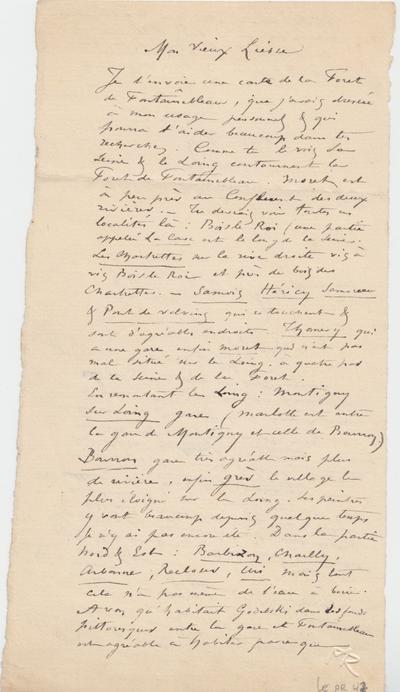 Mon vieux Liesse
Je t'envoie une carte de la Foret
de Fontainebleau, que j'avais dressée
à mon usage personnel & qui
pourra t'aider beaucoup dans tes
recherches. Comme tu le vois la
Seine & le Loing contournent la
Foret de Fontainebleau. Moret est
à peu près au Confluent des deux
rivières. — Tu devrais voir toutes ces
localités là : Bois le Roi (une partie
appelée La Cave est le long de la Seine.
Les Chartrettes sur la rive droite vis à
vis Bois le Roi et près du bois des
Chartrettes. — Samois Héricy Samoreau
& Pont de Valvins qui se touchent &
sont d'agréables endroits. Thomery qui
a une gare enfin Moret qui n'est pas
mal situé sur le Loing. à quatre pas
de la Seine & de la Foret.
En remontant le Loing : Montigny
sur Loing gare (Marlotte est entre
la gare de Montigny et celle de Bourron)
Bourron gare très agréable mais plus
de rivière, enfin grès le village le
plus éloigné sur le Loing. Les peintres
y vont beaucoup depuis quelque temps
Je n'y ai pas encore été. Dans la partie
Nord & Est : Barbizon, Chailly,
Arbonne, Recloses, Uri mais tout
cela n'a pas même de l'eau à boire.
Avon qu'habitait Godebski dans des fonds
pittoresques entre la gare et Fontainebleau
est agréable à habiter parce que
AR